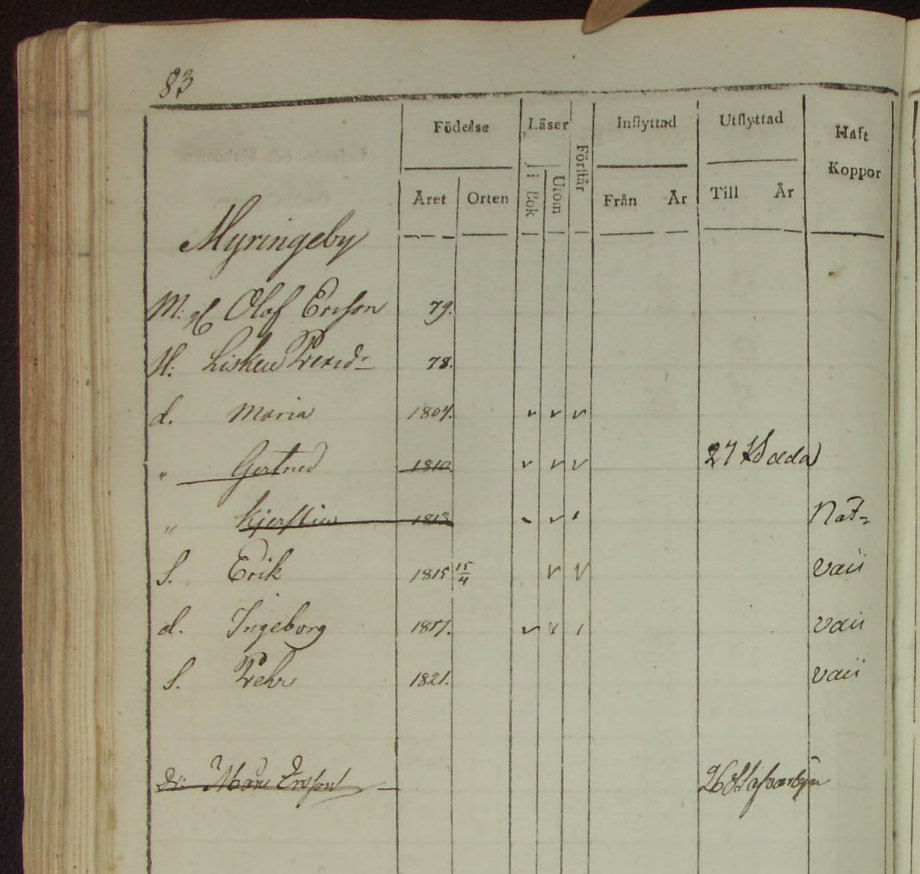 83
Födelse Läser Förstår Inflyttad Utflyttad Haft Koppor
Året Orten i Bok Utom Från År Till År
Myringeby
M: Olof Ersson 79.
H: Lisken Persdr 78.
d. Maria 1807. v v v
" Gertrud 1810 v v v 27
" Kjerstin 1813 Nat.
S. Erik 1815 15/4 v v vaci
d. Ingeborg 1817. v vaci
S. Pehr 1821. vaci
Dr: Måns Ersson 26